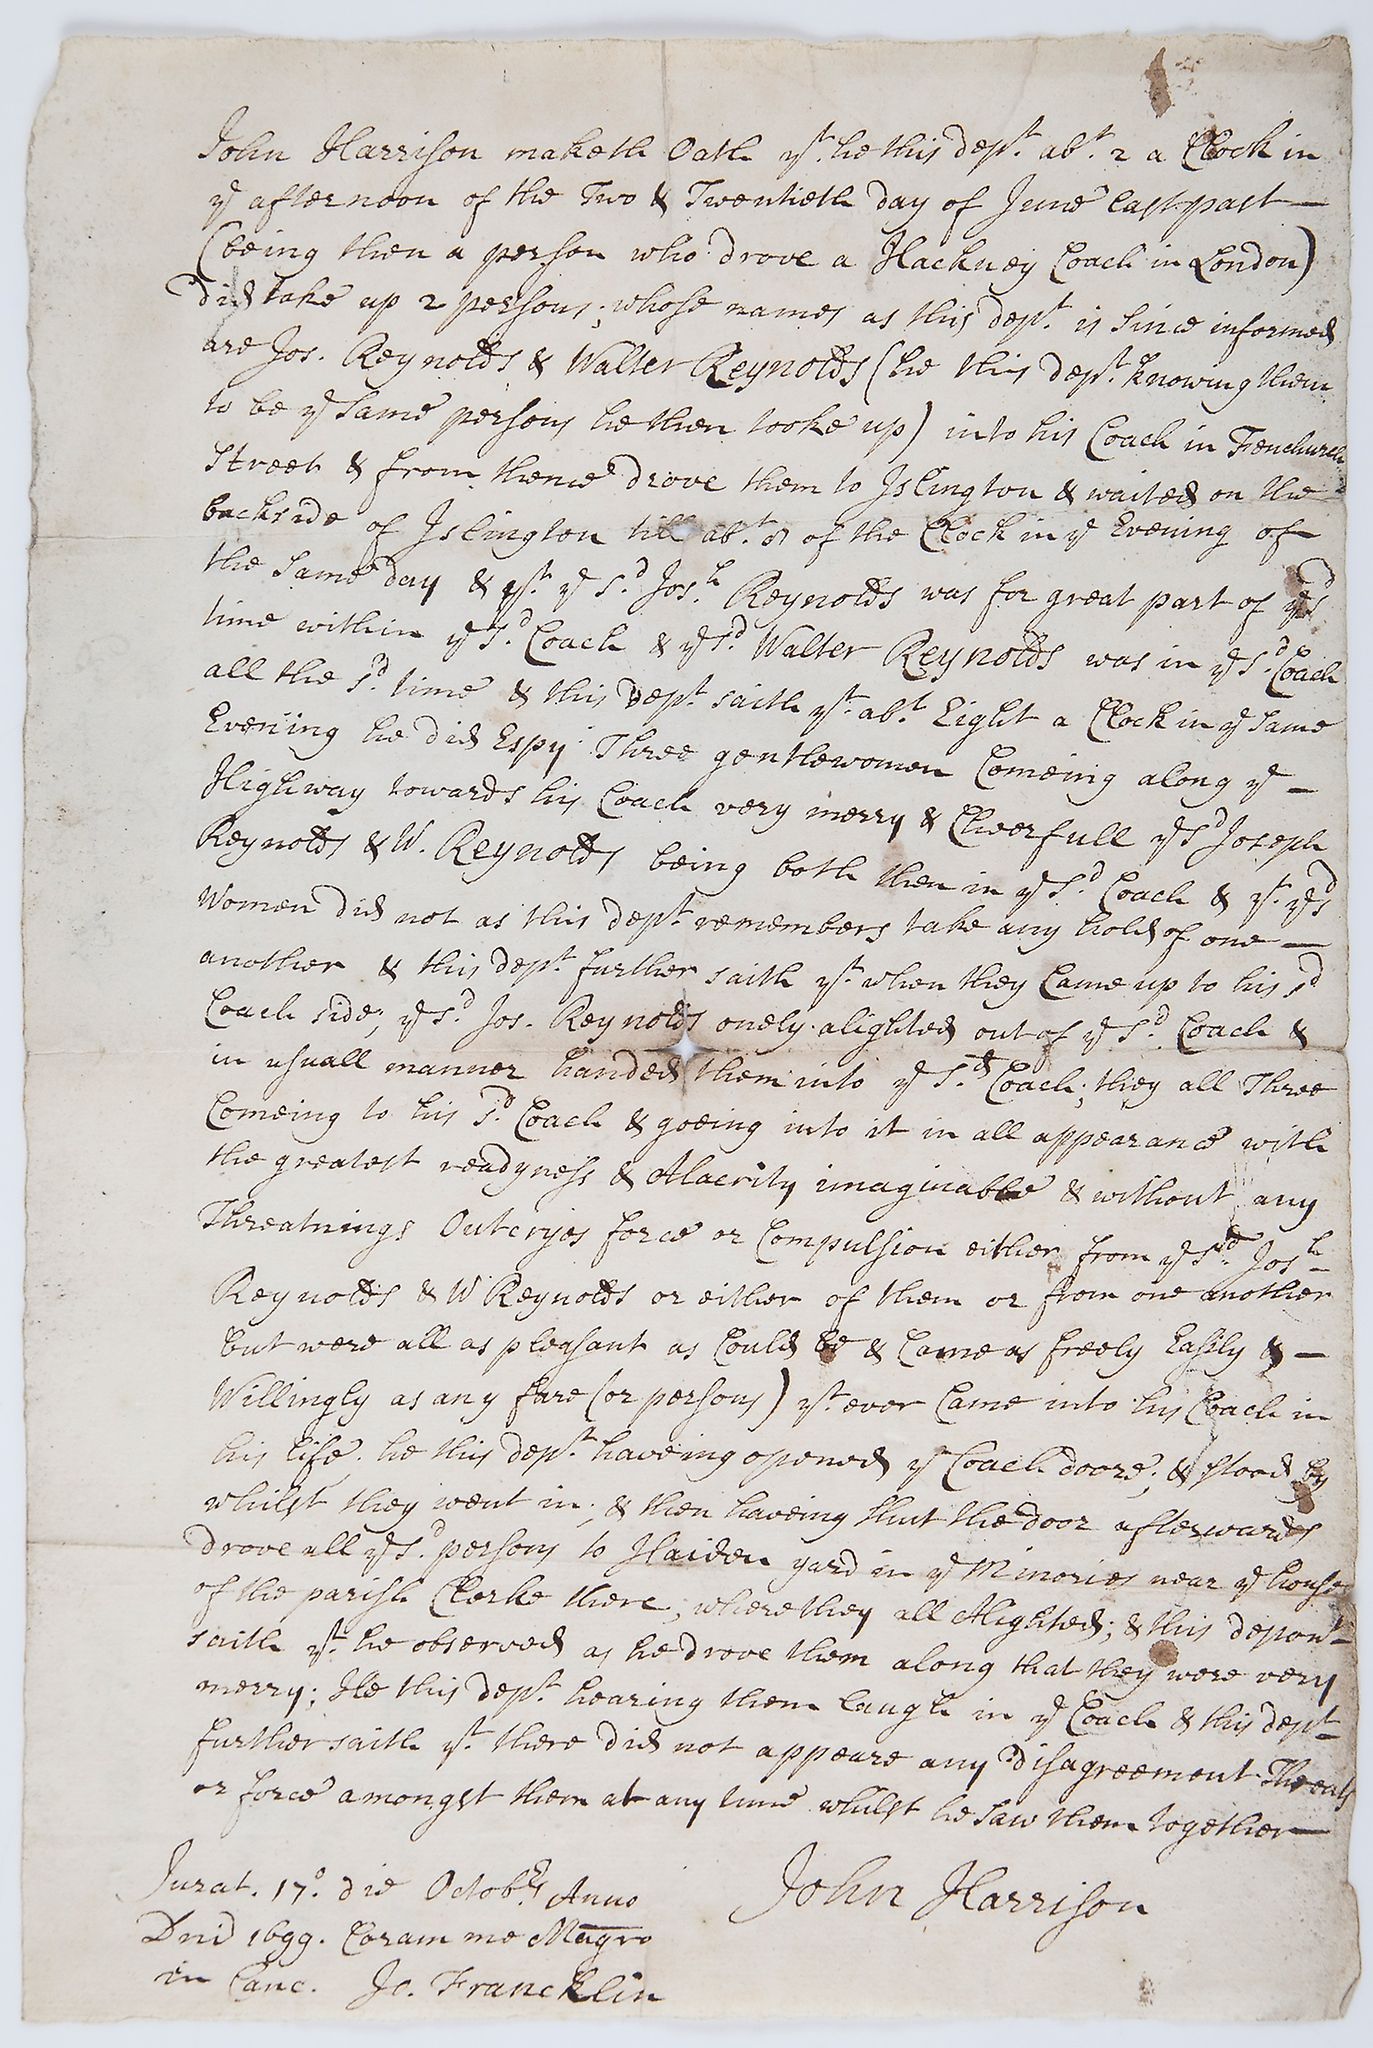 John Harrison maketh Oath yt. he this dept. abt. 2 a Clock in
ye afternoon of the Two & Twentieth day of June last past —
(being then a person who drove a Hackney Coach in London)
did take up 2 persons; whose names as this dept. is since informed
are Jos. Reynolds & Walter Reynolds (he this dept. knowing them
to be ye same persons he then tooke up) into his Coach in Fenchurch
Street & from thence drove them to Islington & waited on the
backside of Islington till abt. 8 of the Clock in ye Evening of
the same day & yt. ye sd. Josh. Reynolds was for great part of ye sd
time within ye sd. Coach & ye sd. Walter Reynolds was in ye sd. Coach
all the sd. time & this dept. saith yt. abt. Eight a Clock in ye same
Evening he did Espy Three gentlewomen Comeing along ye —
Highway towards his Coach very merry & Cheerfull ye sd Joseph
Reynolds & W. Reynolds being both then in ye sd. Coach & yt. ye sd
Women did not as this dept. remembers take any hold of one —
another & this dept. further saith yt. when they Came up to his sd
Coach side; ye sd. Jos. Reynolds onely alighted out of ye sd. Coach &
in usuall manner handed them into ye sd. Coach; they all Three
Comeing to his sd. Coach & goeing into it in all appearance with
the greatest readyness & Alacrity imaginable & without any
Threatnings Outcryes force or Compulsion either from ye sd. Josh.
Reynolds & W Reynolds or either of them or from one another
but were all as pleasant as Could be & Came as freely Easily & —
Willingly as any fare (or persons) yt. ever Came into his Coach in
his life. he this dept. haveing opened ye Coach doore; & stood by
whilst they went in; & then haveing shut the door afterwards
drove all ye sd. persons to Haiden yard in ye Minories near ye house
of the parish Clerke there; where they all Alighted; & this depont
saith yt. he observed as he drove them along that they were very
merry; He this dept. hearing them laugh in ye Coach & this dept
further saith yt. there did not appeare any disagreement Threats
or force amongst them at any time whilst he saw them together —
Jurat. 17o. die Octobrs Anno
Dni 1699. Coram me Magro
in Canc. Jo. Francklin
John Harrison